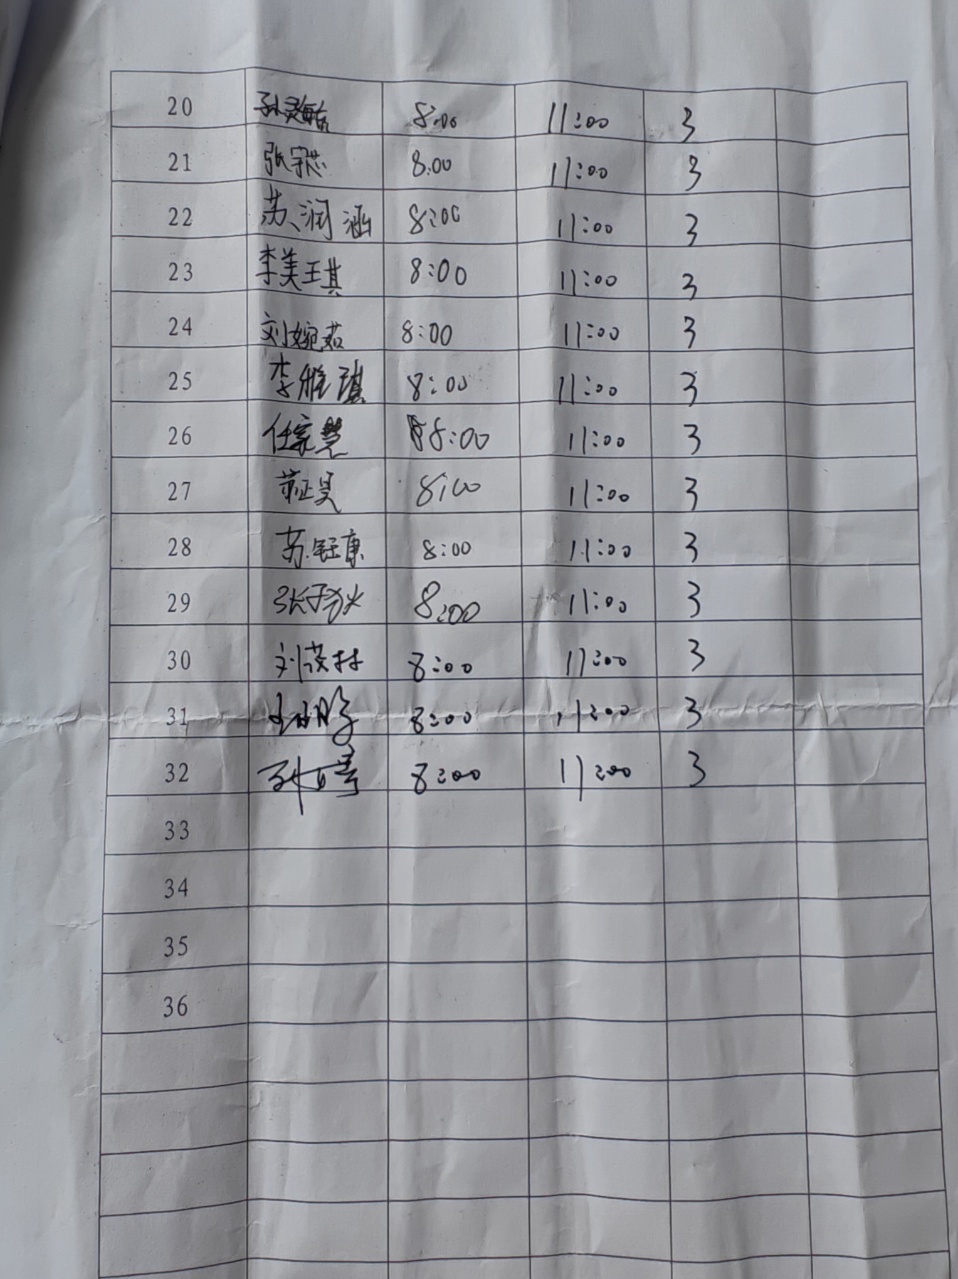 20 8:00 11:00 3
21 张 8.00 11:00 3
22 苏润涵 8:00 11:00 3
23 李美琪 8:00 11:00 3
24 刘婉茹 8:00 11:00 3
25 李雅琪 8:00 11:00 3
26 任家慧 8:00 11:00 3
27 8:00 11:00 3
28 苏钰康 8:00 11:00 3
29 8:00 11:00 3
30 刘 8:00 11:00 3
31 8:00 11:00 3
32 8:00 11:00 3
33
34
35
36